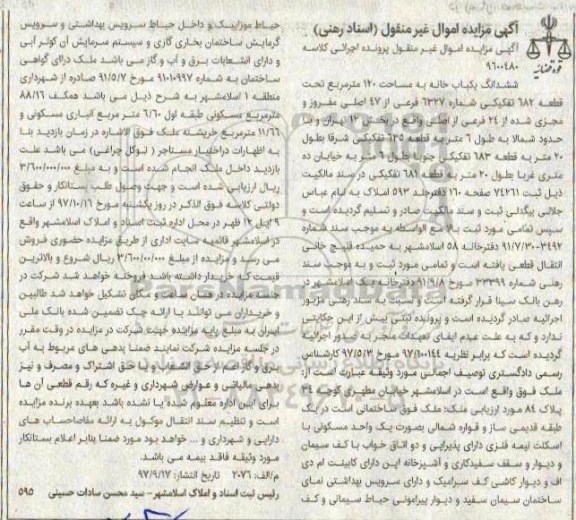 آگهی مزایده اموال غیر منقول (اسناد رهنی)
آگهی مزایده اموال غیر منقول پرونده اجرائی کلاسه
۹۶۰۰۴۸۰
قوه قضائیه
ششدانگ یکباب خانه به مساحت ۱۲۰ مترمربع تحت
قطعه ۶۸۲ تفکیکی شماره ۶۳۲۷ فرعی از ۴۷ اصلی مفروز و
مجزی شده از ۲۴ فرعی از اصلی واقع در بخش ۱۲ تهران و با
حدود شمالا به طول ۶ متر به قطعه ۶۳۵ تفکیکی شرقا بطول
۲۰ متر به قطعه ۶۸۳ تفکیکی جنوبا بطول ۶ متر به خیابان ده
متری غربا بطول ۲۰ متر به قطعه ۶۸۱ تفکیکی در سند مالکیت
ذیل ثبت ۷۴۲۶۱ صفحه ۱۶۰ دفتر جلد ۵۹۳ املاک به نام عباس
جلالی بیگدلی ثبت و سند مالکیت صادر و تسلیم گردیده است و
سپس تمامی مورد ثبت بالا مع الواسطه به موجب سند شماره
۹۱/۷/۳۰-۳۴۹۲ دفترخانه ۵۸ اسلامشهر به حمیده فتیح خانی
انتقال قطعی یافته است و تمامی مورد ثبت و به موجب سند
رهنی شماره ۳۳۳۹۹ مورخ ۹۱/۹/۸ دفترخانه یک اسلامشهر در
رهن بانک سینا قرار گرفته است و نسبت به سند رهنی مزبور
اجرائیه صادر گردیده است و پرونده ثبتی بیش از این حکایتی
ندارد و که به علت عدم ایفای تعهدات منجر به صدور اجرائیه
گردیده است که برابر نظریه ۹۷/۱۰۰۱۴۴ مورخ ۹۷/۵/۳ کارشناس
رسمی دادگستری توصیف اجمالی مورد وثیقه عبارت است از:
ملک فوق واقع است در اسلامشهر خیابان مطهری کوچه ۳۴
پلاک ۸۴ مورد ارزیابی ملک: ملک فوق ساختمانی است در یک
طبقه قدیمی ساز و قواره شمالی بصورت یک واحد مسکونی با
اسکلت نیمه فلزی دارای پذیرایی و دو اتاق خواب با کف سیمان
و دیوار و سقف سفیدکاری و آشپزخانه اپن دارای کابینت ام دی
اف و دیوار کاشی کف سرامیک و دارای سرویس بهداشتی نمای
ساختمان سیمان سفید و دیوار پیرامونی حیاط سیمانی و کف
حیاط موزاییک و داخل حیاط سرویس بهداشتی و سرویس
گرمایش ساختمان بخاری گازی و سیستم سرمایش آن کولر آبی
و دارای انشعابات برق و آب و گاز می باشد ملک دارای گواهی
ساختمان به شماره ۹۱۰۰۹۹۷ مورخ ۹۱/۵/۷ صادره از شهرداری
منطقه ۱ اسلامشهر به شرح ذیل می باشد همکف ۸۸/۱۶
مترمربع مسکونی طبقه اول ۶/۶۰ متر مربع انباری مسکونی و
۱۱/۶۶ مترمربع خرپشته ملک فوق الاشاره در زمان بازدید بنا
به اظهارات در اختیار مستاجر (توکل چراغی) می باشد علت
بازدید داخل ملک انجام شده است و به مبلغ ۳/۶۰۰/۰۰۰/۰۰۰
ریال ارزیابی شده است و جهت وصول طلب بستانکار و حقوق
دولتی کلاسه فوق الذکر در روز یکشنبه مورخ ۹۷/۱۰/۱۶ از ساعت
۹ الی ۱۲ ظهر در محل اداره ثبت اسناد و املاک اسلامشهر واقع
در اسلامشهر قائمیه سایت اداری از طریق مزایده حضوری فروش
می رسد و مزایده از مبلغ ۳/۶۰۰/۰۰۰/۰۰۰ ریال شروع و بالاترین
قیمت که خریدار داشته باشد فروخته خواهد شد شرکت در
جلسه مزایده در همان ساعت و مکان تشکیل خواهد شد طالبین
و خریداران می توانند با ارائه چک تضمین شده بانک ملی
ایران به مبلغ پایه مزایده جهت شرکت در مزایده در وقت مقرر
در جلسه مزایده شرکت نمایند ضمنا بدهی های مربوط به آب
برق و گاز اعم از حق انشعاب و یا حق اشتراک و مصرف و نیز
بدهی مالیاتی و عوارض شهرداری و غیره که رقم قطعی آن ها
برای این اداره معلوم شده یا نشده باشد بعهده برنده مزایده
است و تنظیم سند انتقال موکول به ارائه مفاصاحساب های
دارایی و شهرداری و ... خواهد بود مورد ضمنا بنابر اعلام بستانکار
مورد وثیقه فاقد بیمه می باشد.
م/الف: ۲۰۷۶ تاریخ انتشار: ۹۷/۹/۱۷
رئیس ثبت اسناد و املاک اسلامشهر – سید محسن سادات حسینی ۵۹۵